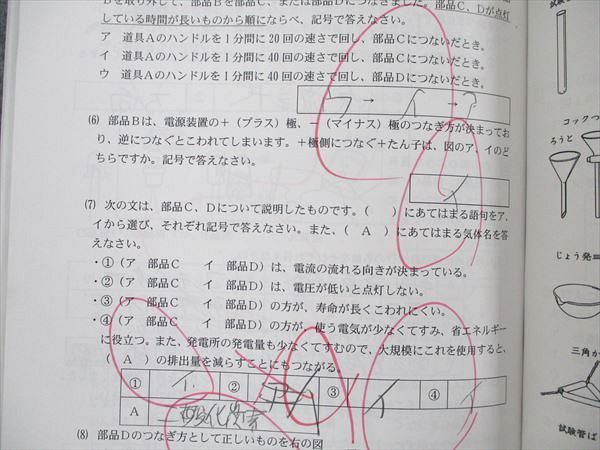 Bを取り外して、部品Bを部品C、または部品Dにつなぎました。部品C、Dが点灯
している時間が長いものから順にならべ、記号で答えなさい。
ア 道具Aのハンドルを1分間に20回の速さで回し、部品Cにつないだとき。
イ 道具Aのハンドルを1分間に40回の速さで回し、部品Cにつないだとき。
ウ 道具Aのハンドルを1分間に40回の速さで回し、部品Dにつないだとき。
ウ → イ → ア
(6) 部品Bは、電源装置の+(プラス)極、-(マイナス)極のつなぎ方が決まってお
り、逆につなぐとこわれてしまいます。+極側につなぐ+たん子は、図のア、イのど
ちらですか。記号で答えなさい。
イ
(7) 次の文は、部品C、Dについて説明したものです。( )にあてはまる語句をア、
イから選び、それぞれ記号で答えなさい。また、( A )にあてはまる気体名を答
えなさい。
・①(ア 部品C イ 部品D)は、電流の流れる向きが決まっている。
・②(ア 部品C イ 部品D)は、電圧が低いと点灯しない。
・③(ア 部品C イ 部品D)の方が、寿命が長くこわれにくい。
・④(ア 部品C イ 部品D)の方が、使う電気が少なくてすみ、省エネルギー
に役立つ。また、発電所の発電量も少なくてすむので、大規模にこれを使用すると、
( A )の排出量を減らすことにもつながる。
① イ ② イ ③ イ ④ イ
A 二酸化炭素
(8) 部品Dのつなぎ方として正しいものを右の図
試験
コックつ
ろうと
じょう発
三角か
試験管ば